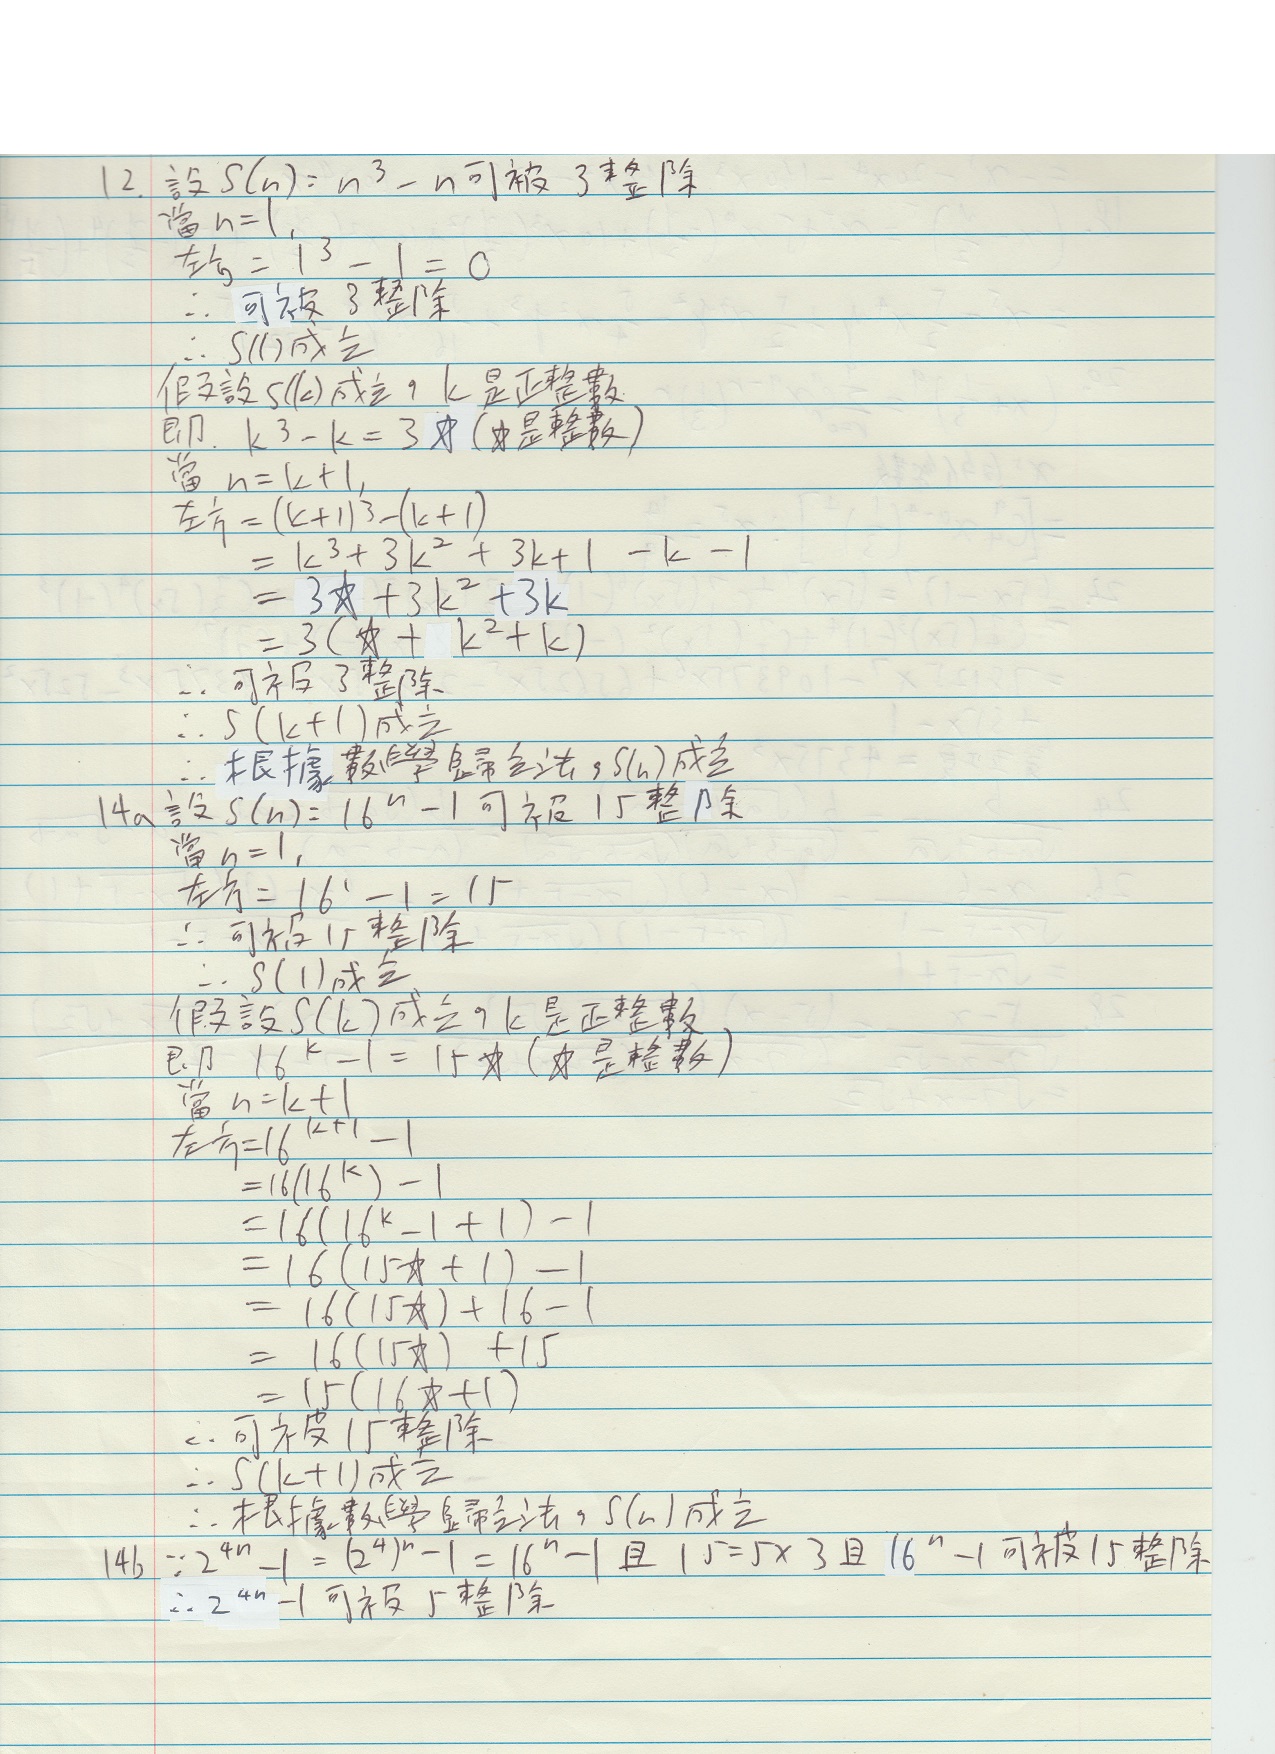 12. 設S(n): n³ - n可被3整除
當n=1,
左方 = 1³ - 1 = 0
∴ 可被3整除
∴ S(1)成立
假設S(k)成立，k是正整數
即 k³ - k = 3☆ (☆是整數)
當 n=k+1,
左方 = (k+1)³ - (k+1)
= k³ + 3k² + 3k + 1 - k - 1
= 3☆ + 3k² + 3k
= 3(☆ + k² + k)
∴ 可被3整除
∴ S(k+1)成立
∴ 根據數學歸立法，S(n)成立
14a 設S(n): 16ⁿ - 1可被15整除
當n=1,
左方 = 16¹ - 1 = 15
∴ 可被15整除
∴ S(1)成立
假設S(k)成立，k是正整數
即 16ᵏ - 1 = 15☆ (☆是整數)
當n=k+1
左方=16ᵏ⁺¹ - 1
=16(16ᵏ) - 1
=16(16ᵏ - 1 + 1) - 1
= 16(15☆ + 1) - 1
= 16(15☆) + 16 - 1
= 16(15☆) + 15
= 15(16☆+1)
∴ 可被15整除
∴ S(k+1)成立
∴ 根據數學歸立法，S(n)成立
14b ∵ 2⁴ⁿ - 1 = (2⁴)ⁿ - 1 = 16ⁿ - 1 且 15=5×3 且 16ⁿ - 1 可被15整除
∴ 2⁴ⁿ - 1 可被5整除